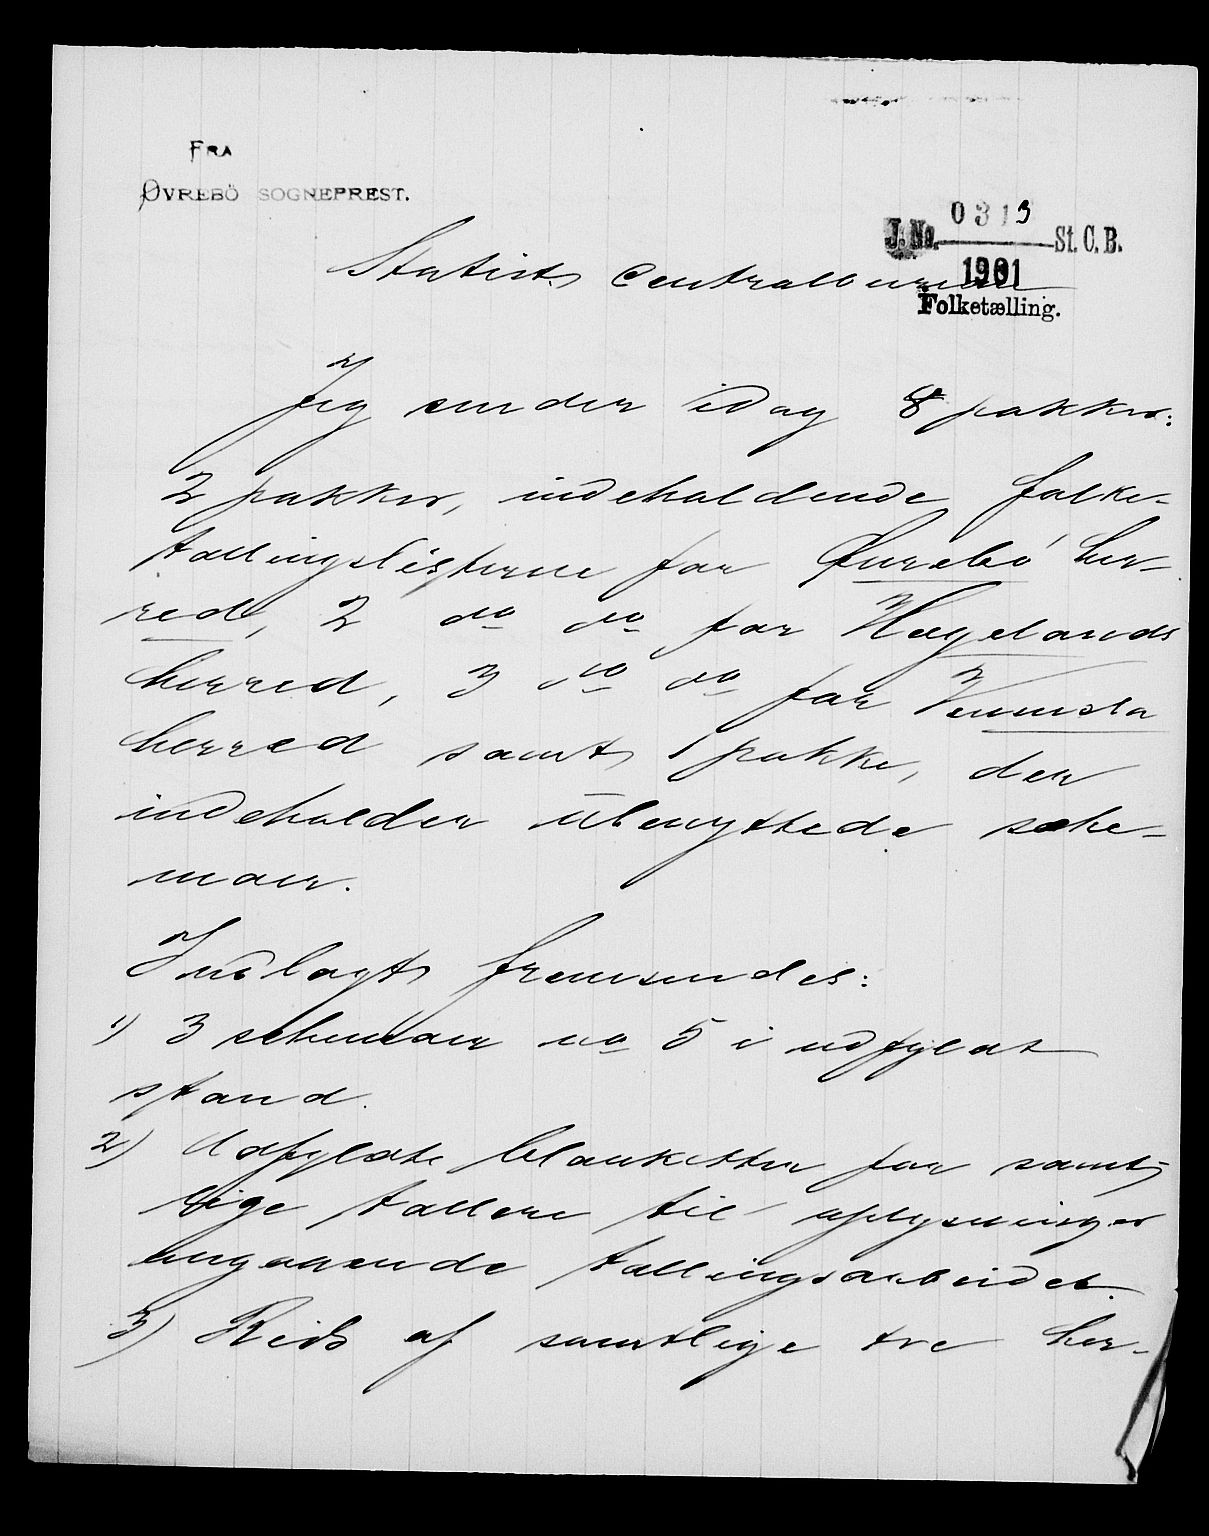 FRA
ØVREBÖ SOGNEPREST.
J. No. 0313 St. C. B.
1901
Folketælling.
Statist. Centralbureau
Jeg sender idag 8 pakker:
2 pakker, indeholdende folke-
tællingslisterne for Øvrebö her-
red, 2 do do for Hægelands
herred, 3 do do for Vennesla
herred samt 1 pakke, der
indeholder ubenyttede sche-
maer.
Indlagt fremsendes:
1) 3 schemaer no 5 i udfyldt
stand.
2) Udfyldte blanketter for samt-
lige tællere til oplysninger
angaaende tællingsarbeidet.
3) Rids af samtlige tre her-